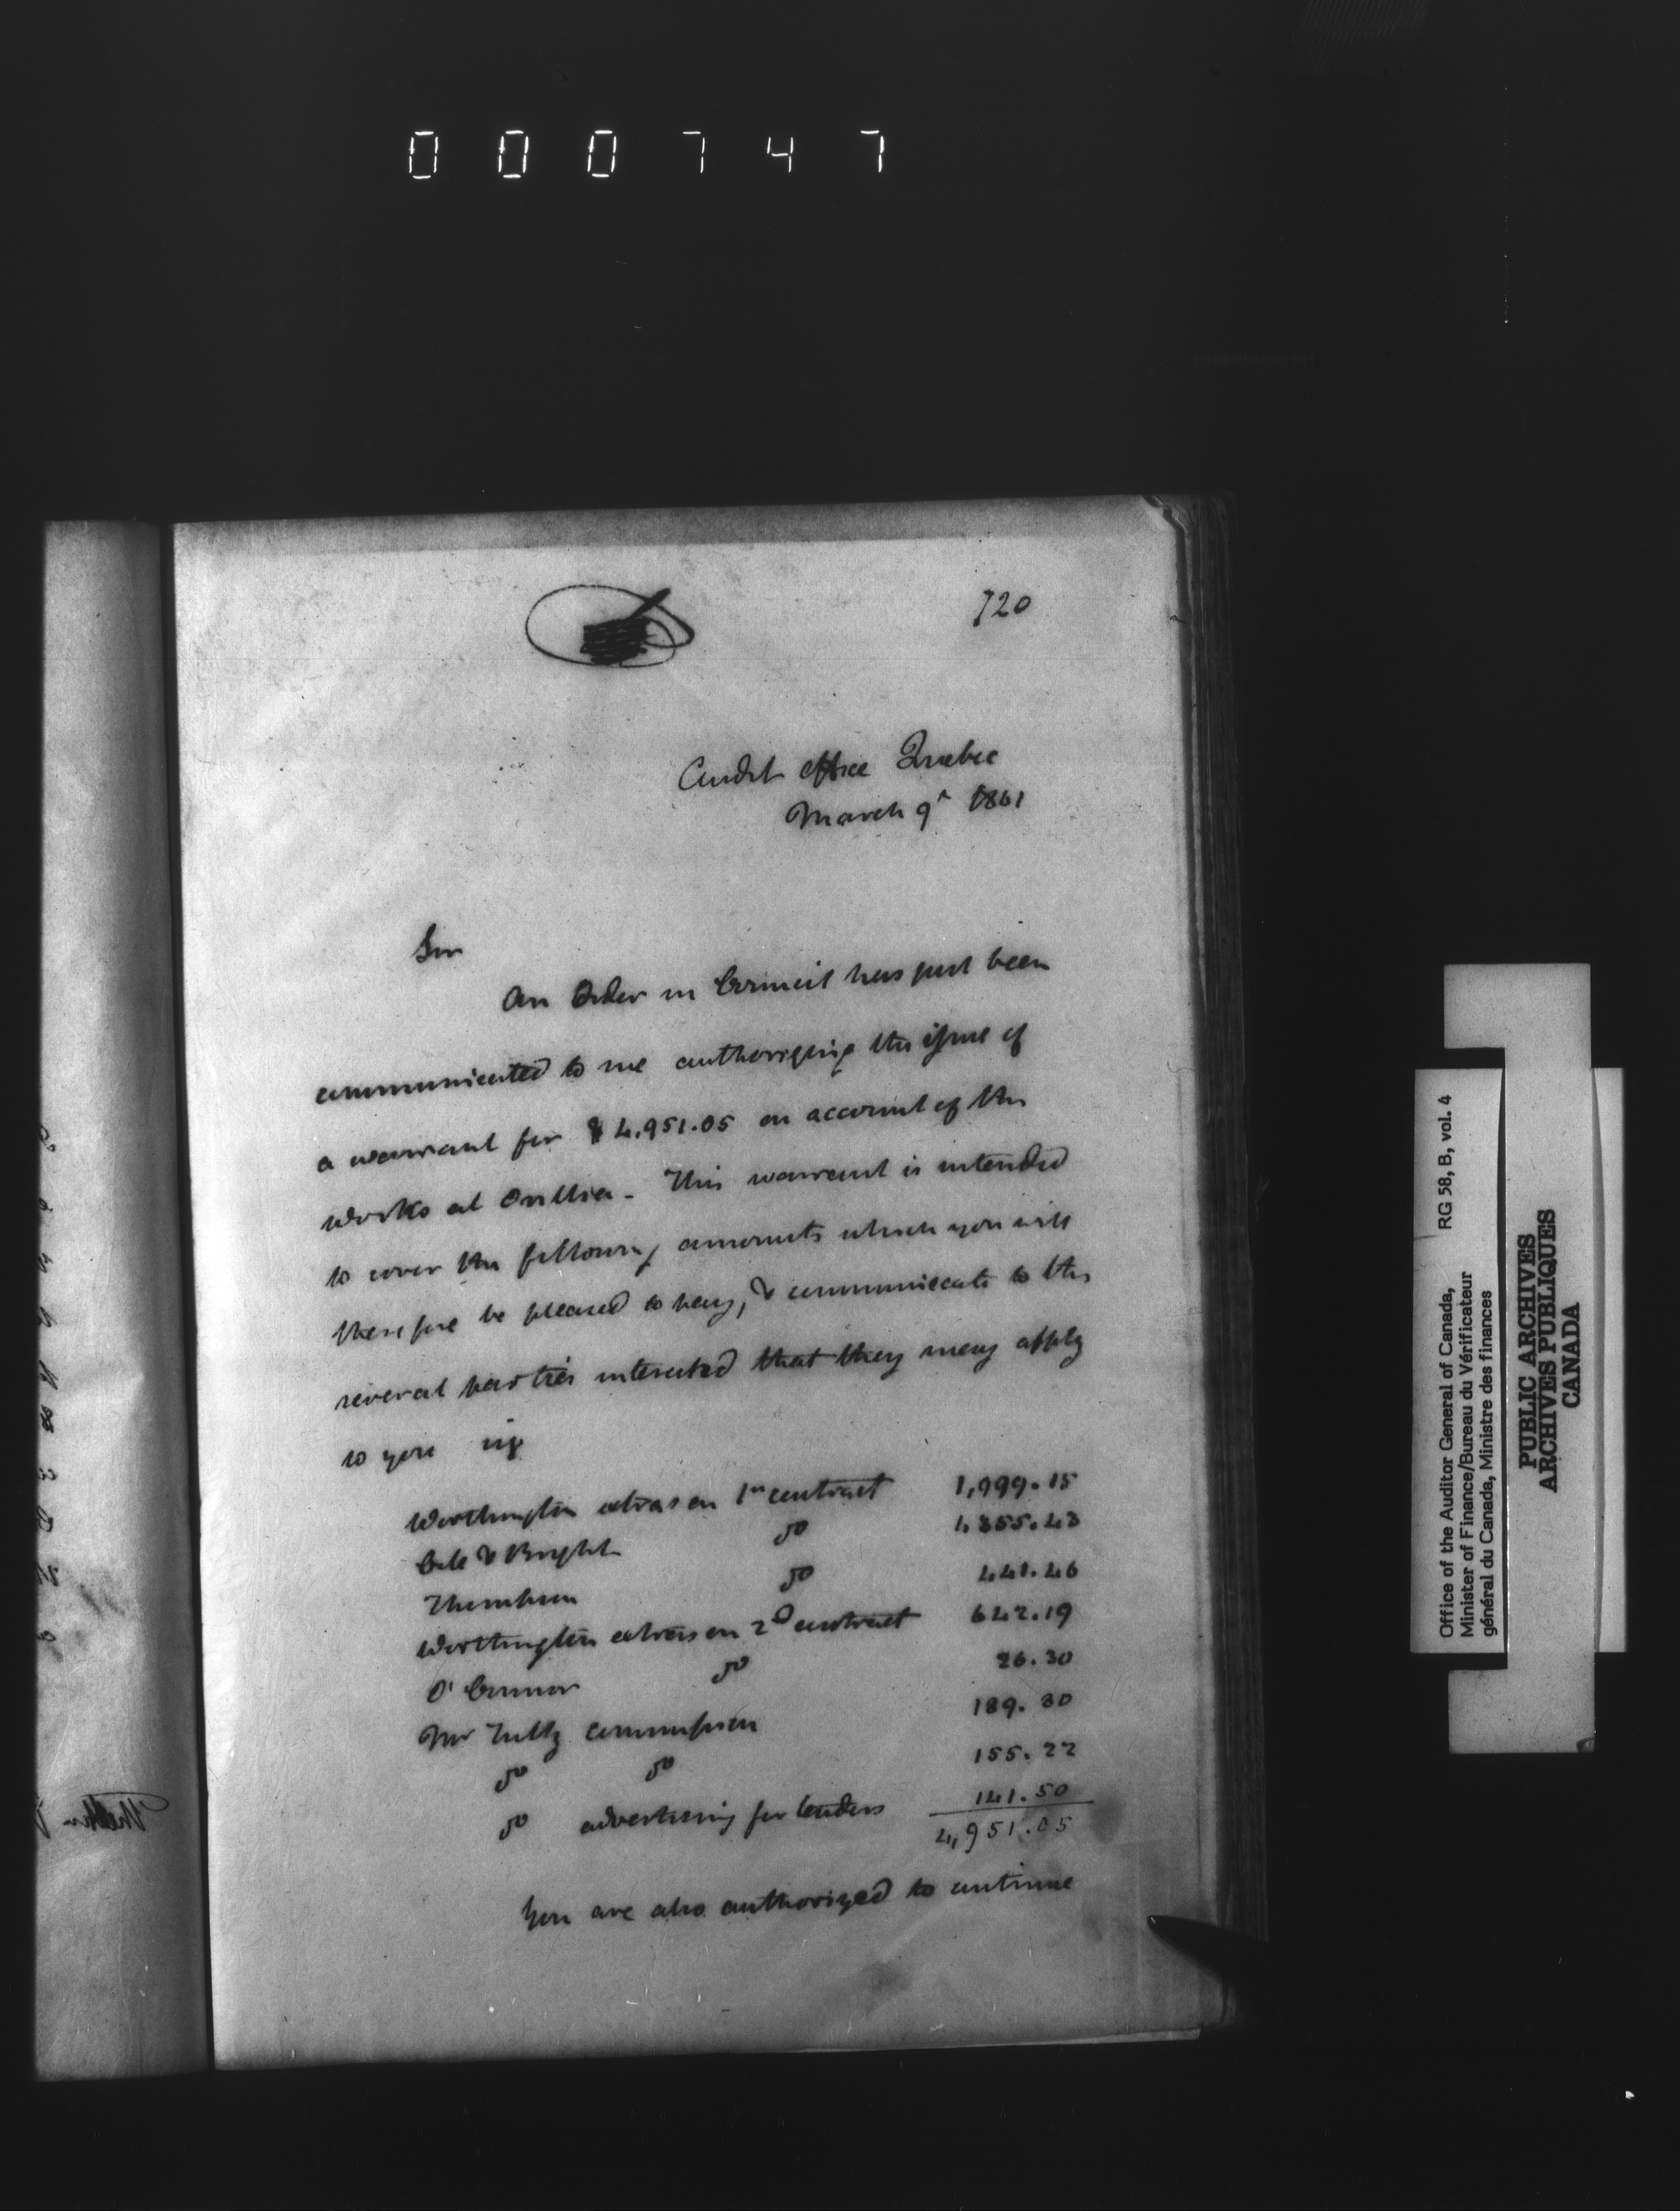 000747
720
Audit Office Quebec
March 9th 1861
Sir
An Order in Council has just been
communicated to me authorizing the issue of
a warrant for $4,951.05 on account of the
works at Orillia - This warrant is intended
to cover the following amounts which you will
therefore be pleased to pay, & communicate to the
several parties interested that they may apply
to you viz
Worthington extras on 1st contract 1,999.15
& Bright Do 1,355.43
Thompson Do 441.46
Worthington extras on 2d contract 642.19
O'Connor Do 26.30
Mr Tully commission 189.80
Do Do 155.22
Do advertising for tenders 141.50
4,951.05
You are also authorized to continue
Office of the Auditor General of Canada, RG 58, B, vol. 4
Minister of Finance/Bureau du Vérificateur
général du Canada, Ministre des finances
PUBLIC ARCHIVES
ARCHIVES PUBLIQUES
CANADA